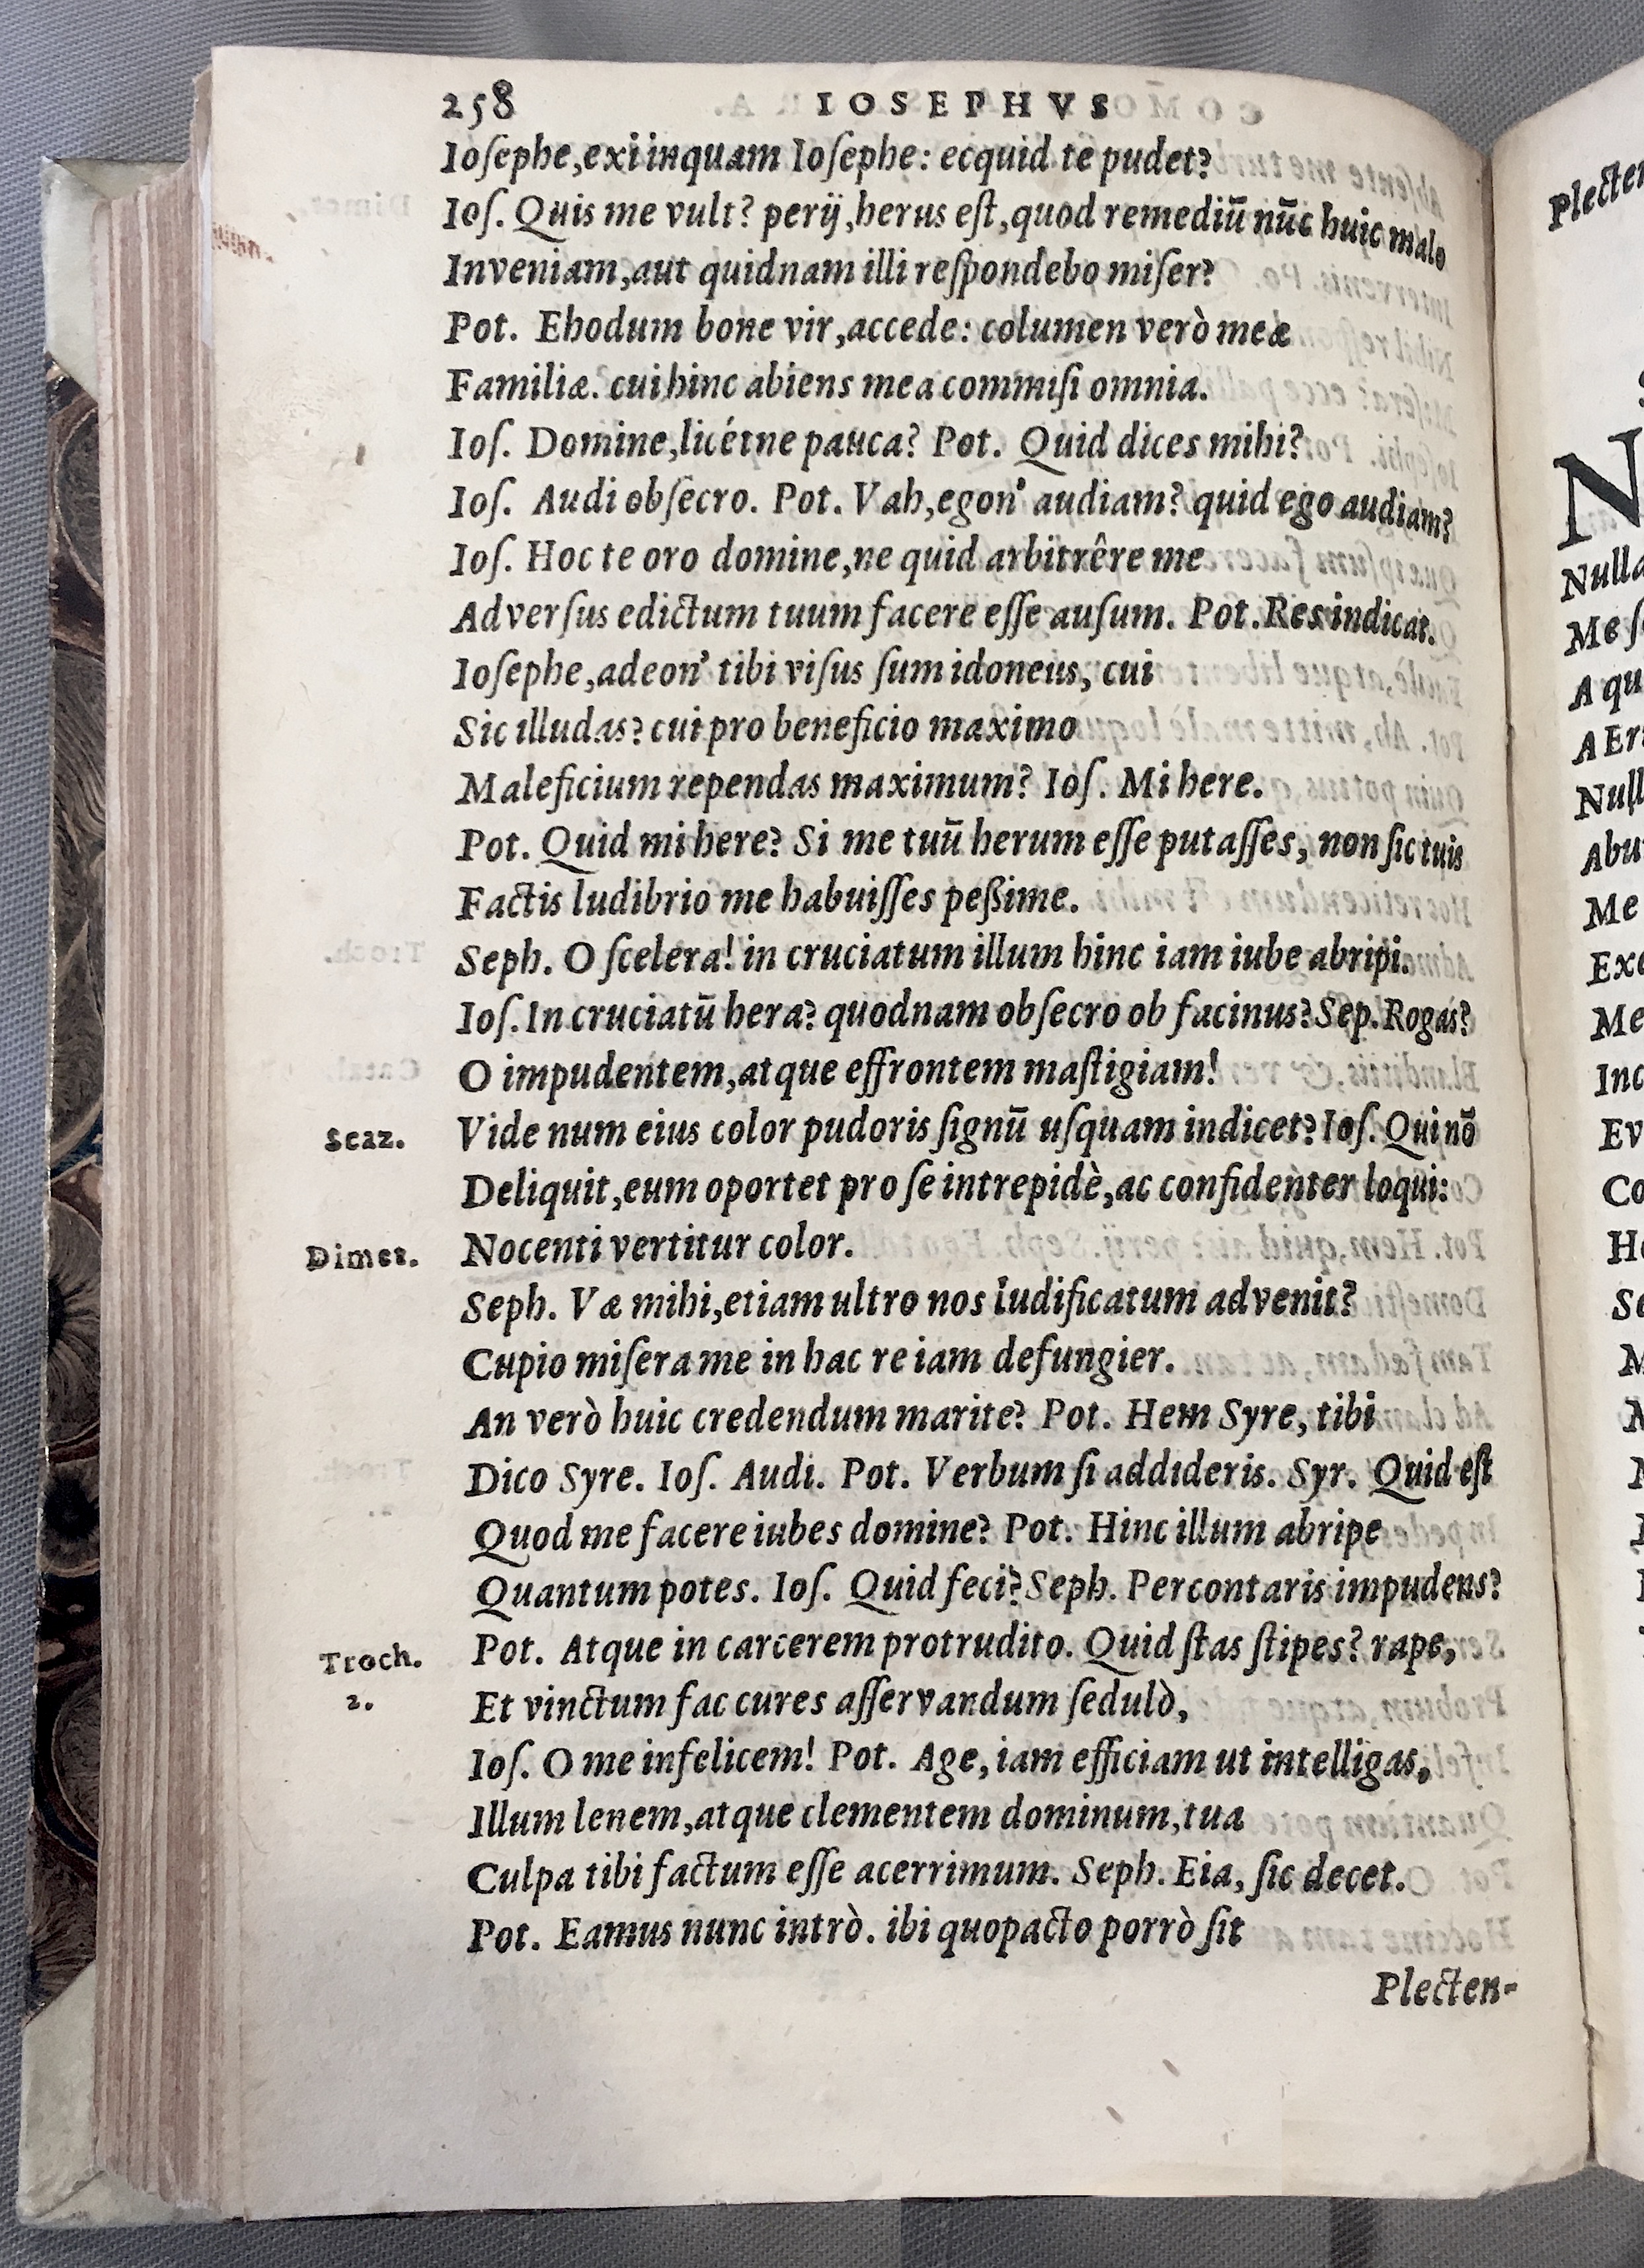 258 IOSEPHVS
Ioſephe, exi inquam Ioſephe: ecquid te pudet?
Ioſ. Quis me vult? perij, herus eſt, quod remediū nūc huic malo
Inveniam, aut quidnam illi reſpondebo miſer?
Pot. Ehodum bone vir, accede: columen verò meæ
Familiæ. cui hinc abiens mea commiſi omnia.
Ioſ. Domine, licétne pauca? Pot. Quid dices mihi?
Ioſ. Audi obſecro. Pot. Vah, egon' audiam? quid ego audiam?
Ioſ. Hoc te oro domine, ne quid arbitrêre me
Adverſus edictum tuum facere eſſe auſum. Pot. Res indicat.
Ioſephe, adeon' tibi viſus ſum idoneus, cui
Sic illudas? cui pro beneficio maximo
Maleficium rependas maximum? Ioſ. Mi here.
Pot. Quid mi here? Si me tuū herum eſſe putaſſes, non ſic tuis
Factis ludibrio me habuiſſes peßime.
Seph. O ſcelera! in cruciatum illum hinc iam iube abripi.
Ioſ. In cruciatū hera? quodnam obſecro ob facinus? Sep. Rogas?
O impudentem, atque effrontem maſtigiam!
Scaz. Vide num eius color pudoris ſignū uſquam indicet? Ioſ. Qui nō
Deliquit, eum oportet pro ſe intrepidè, ac confidenter loqui:
Dimet. Nocenti vertitur color.
Seph. Væ mihi, etiam ultro nos ludificatum advenit?
Cupio miſera me in hac re iam defungier.
An verò huic credendum marite? Pot. Hem Syre, tibi
Dico Syre. Ioſ. Audi. Pot. Verbum ſi addideris. Syr. Quid eſt
Quod me facere iubes domine? Pot. Hinc illum abripe
Quantum potes. Ioſ. Quid feci? Seph. Percontaris impudens?
Troch. Pot. Atque in carcerem protrudito. Quid ſtas ſtipes? rape,
2. Et vinctum fac cures aſſervandum ſedulò,
Ioſ. O me infelicem! Pot. Age, iam efficiam ut intelligas,
Illum lenem, atque clementem dominum, tua
Culpa tibi factum eſſe acerrimum. Seph. Eia, ſic decet.
Pot. Eamus nunc intrò. ibi quopacto porrò ſit
Plecten-